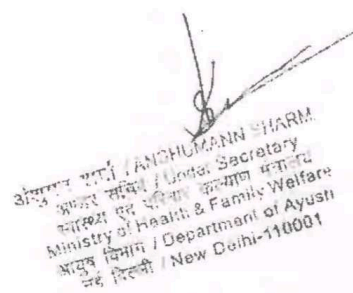 अंशुमान शर्मा / ANSHUMANN SHARM
अवर सचिव / Under Secretary
स्वास्थ्य एवं परिवार कल्याण मंत्रालय
Ministry of Health & Family Welfare
आयुष विभाग / Department of Ayush
नई दिल्ली / New Delhi-110001